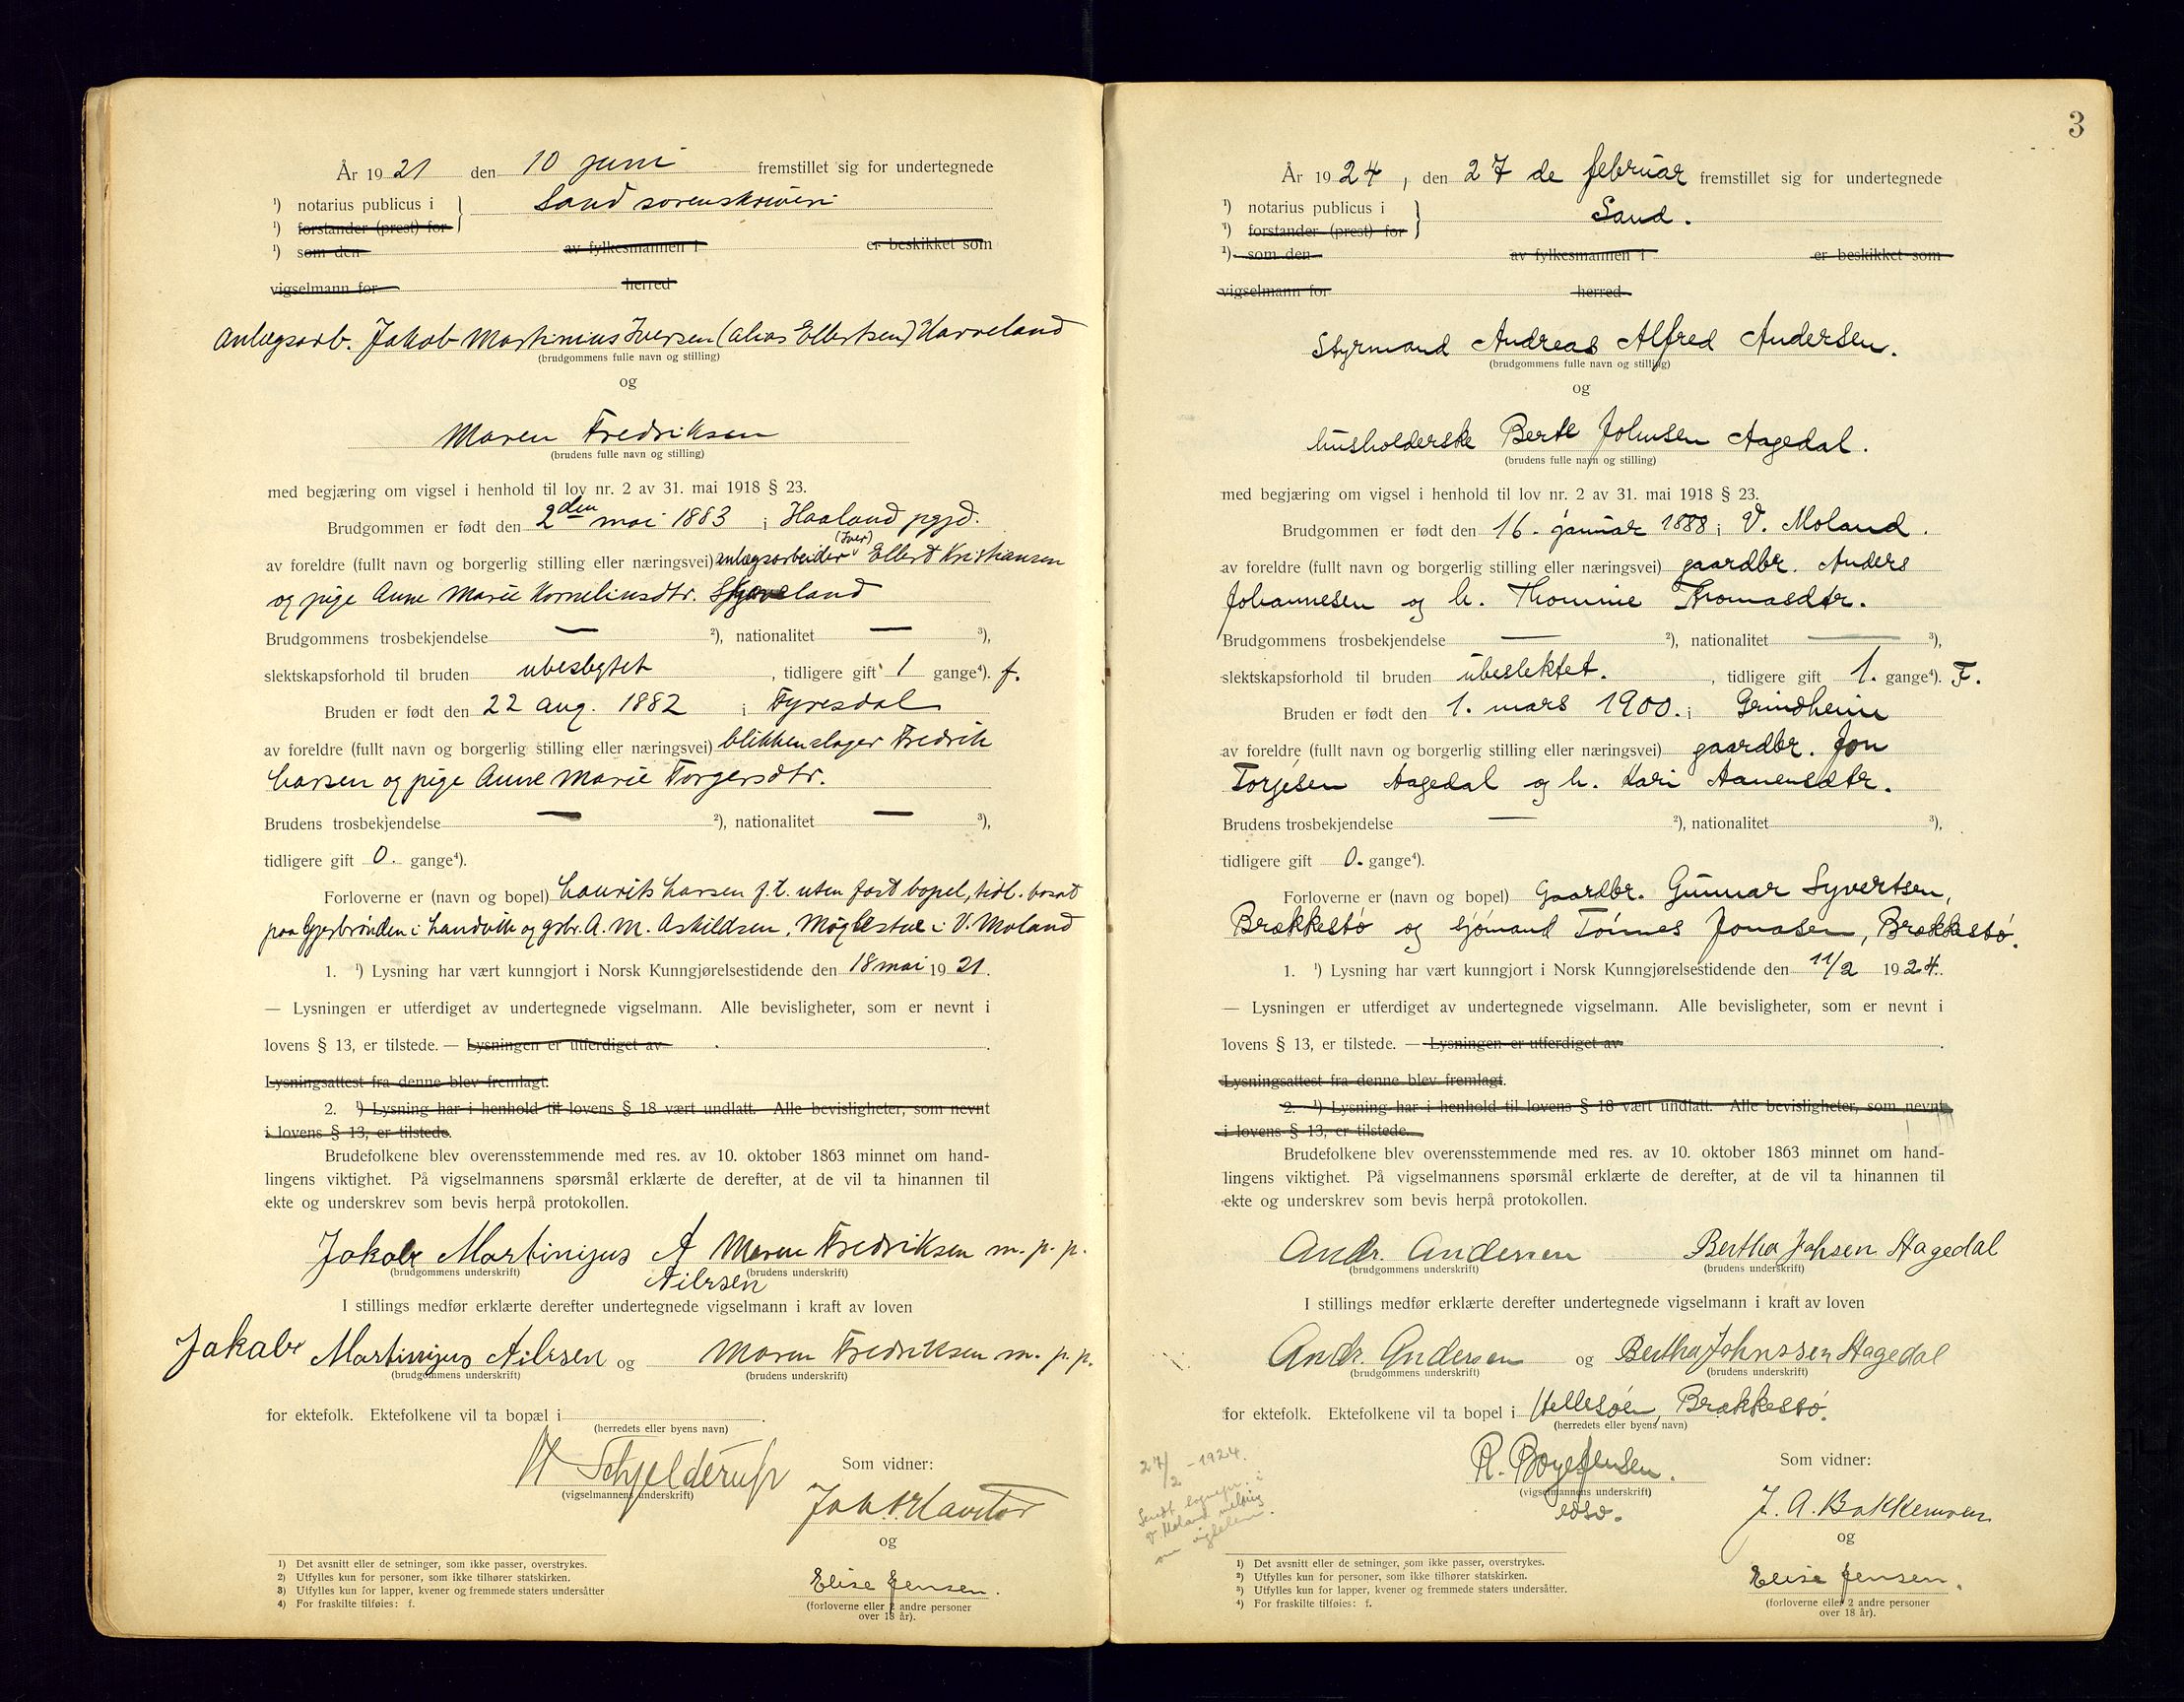 År 1921 den 10 juni fremstillet sig for undertegnede
¹) notarius publicus i } Sand sorenskriveri
¹) forstander (prest) for
¹) som den av fylkesmannen i er beskikket som
vigselmann for herred
Anlægsarb. Jakob Martinius Iversen (alias Ellertsen) Harveland
(brudgommens fulle navn og stilling)
og
Maren Fredriksen
(brudens fulle navn og stilling)
med begjæring om vigsel i henhold til lov nr. 2 av 31. mai 1918 § 23.
Brudgommen er født den 2den mai 1883 i Haaland pgjd.
av foreldre (fullt navn og borgerlig stilling eller næringsvei) anlægsarbeider (Iver) Ellert Kristiansen
og pige Anne Marie Korneliusdtr. land
Brudgommens trosbekjendelse — ²), nationalitet — ³),
slektskapsforhold til bruden ubeslegtet, tidligere gift 1 gange⁴). f.
Bruden er født den 22 aug. 1882 i Fyresdal
av foreldre (fullt navn og borgerlig stilling eller næringsvei) blikkenslager Fredrik
Larsen og pige Anne Marie Torgersdtr.
Brudens trosbekjendelse — ²), nationalitet — ³),
tidligere gift 0. gange⁴).
Forloverne er (navn og bopel) Laurits Larsen f. t. uten fast bopel, tidl. bosat
paa Gjerbrønden i Landvik og grbr. A. M. Askildsen, Møglestue i V. Moland
1. ¹) Lysning har vært kunngjort i Norsk Kunngjørelsestidende den 18 mai 1921.
— Lysningen er utferdiget av undertegnede vigselmann. Alle bevisligheter, som er nevnt i
lovens § 13, er tilstede. — Lysningen er utferdiget av .
Lysningsattest fra denne blev fremlagt.
2. ¹) Lysning har i henhold til lovens § 18 vært undlatt. Alle bevisligheter, som nevnt
i lovens § 13, er tilstede.
Brudefolkene blev overensstemmende med res. av 10. oktober 1863 minnet om hand-
lingens viktighet. På vigselmannens spørsmål erklærte de derefter, at de vil ta hinannen til
ekte og underskrev som bevis herpå protokollen.
Jakob Martinijus A Maren Fredriksen m. p. p.
(brudgommens underskrift) (brudens underskrift)
Ailrsen
I stillings medfør erklærte derefter undertegnede vigselmann i kraft av loven
Jakob Martinijus Ailrsen og Maren Fredriksen m. p. p.
(brudgommens underskrift) (brudens underskrift)
for ektefolk. Ektefolkene vil ta bopæl i .
(herredets eller byens navn)
Schjelderup Som vidner:
(vigselmannens underskrift)
og
Elise Jensen.
(forloverne eller 2 andre personer
over 18 år).
1) Det avsnitt eller de setninger, som ikke passer, overstrykes.
2) Utfylles kun for personer, som ikke tilhører statskirken.
3) Utfylles kun for lapper, kvener og fremmede staters undersåtter
4) For fraskilte tilføies: f.
3
År 1924, den 27 de februar fremstillet sig for undertegnede
¹) notarius publicus i } Sand.
¹) forstander (prest) for
¹) som den av fylkesmannen i er beskikket som
vigselmann for herred
Styrmand Andreas Alfred Andersen.
(brudgommens fulle navn og stilling)
og
husholderske Berte Johnsen Aagedal.
(brudens fulle navn og stilling)
med begjæring om vigsel i henhold til lov nr. 2 av 31. mai 1918 § 23.
Brudgommen er født den 16. januar 1888 i V. Moland.
av foreldre (fullt navn og borgerlig stilling eller næringsvei) gaardbr. Anders
Johannesen og h. Thomine Thomasdtr.
Brudgommens trosbekjendelse — ²), nationalitet — ³),
slektskapsforhold til bruden ubeslektet., tidligere gift 1. gange⁴). F.
Bruden er født den 1. mars 1900. i Grindheim
av foreldre (fullt navn og borgerlig stilling eller næringsvei) gaardbr. Jon
Torjesen Aagedal og h. Kari Aanensdtr.
Brudens trosbekjendelse — ²), nationalitet ³),
tidligere gift 0. gange⁴).
Forloverne er (navn og bopel) Gaardbr. Gunnar Syvertsen,
Brækkestø og sjømand Tønnes Jonasen, Brækkestø.
1. ¹) Lysning har vært kunngjort i Norsk Kunngjørelsestidende den 11/2 1924.
— Lysningen er utferdiget av undertegnede vigselmann. Alle bevisligheter, som er nevnt i
lovens § 13, er tilstede. — Lysningen er utferdiget av .
Lysningsattest fra denne blev fremlagt.
2. ¹) Lysning har i henhold til lovens § 18 vært undlatt. Alle bevisligheter, som nevnt
i lovens § 13, er tilstede.
Brudefolkene blev overensstemmende med res. av 10. oktober 1863 minnet om hand-
lingens viktighet. På vigselmannens spørsmål erklærte de derefter, at de vil ta hinannen til
ekte og underskrev som bevis herpå protokollen.
Andr. Andersen Bertha Johsen Aagedal
(brudgommens underskrift) (brudens underskrift)
I stillings medfør erklærte derefter undertegnede vigselmann i kraft av loven
Andr. Andersen og Bertha Johnssen Aagedal
(brudgommens underskrift) (brudens underskrift)
for ektefolk. Ektefolkene vil ta bopel i Hellesøen, Brækkestø.
(herredets eller byens navn)
27/2 - 1924.
Sendt sognepr. i
V. Moland melding
om vigselen.
R. Boye Jensen. Som vidner:
(vigselmannens underskrift)
J. A. Bakkemoen
og
Elise Jensen.
(forloverne eller 2 andre personer
over 18 år).
1) Det avsnitt eller de setninger, som ikke passer, overstrykes.
2) Utfylles kun for personer, som ikke tilhører statskirken.
3) Utfylles kun for lapper, kvener og fremmede staters undersåtter.
4) For fraskilte tilføies: f.